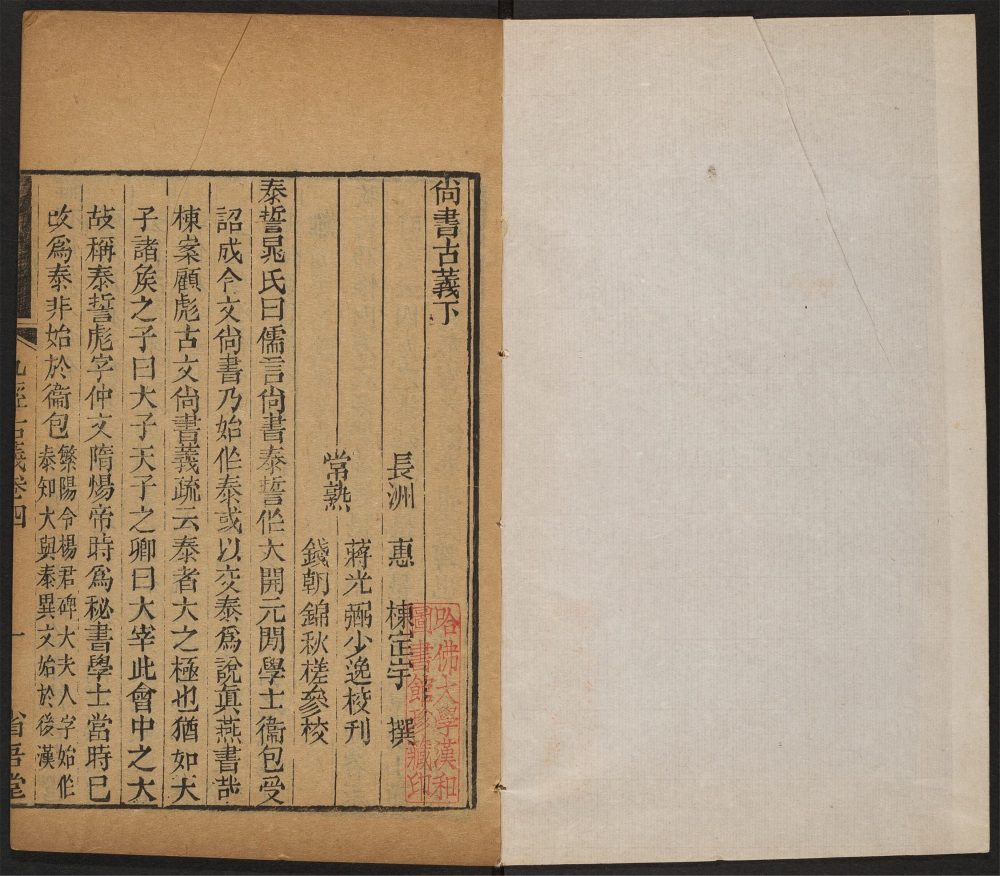 尚書古義下
長洲 惠 棟定宇 撰
蔣光弼少逸校刊
常熟
錢朝錦秋槎參校
泰誓晁氏曰儒言尚書泰誓作大開元閒學士衞包受
詔成今文尚書乃始作泰或以交泰爲說眞燕書哉
棟案顧彪古文尚書義疏云泰者大之極也猶如天
子諸矦之子曰大子天子之卿曰大宰此會中之大
故稱泰誓彪字仲文隋煬帝時爲秘書學士當時已
改爲泰非始於衞包繁陽令楊君碑大夫人字始作
泰知大與泰異文始於後漢
九經古義卷四
一
省吾堂
哈佛大學漢和
圖書館珍藏印